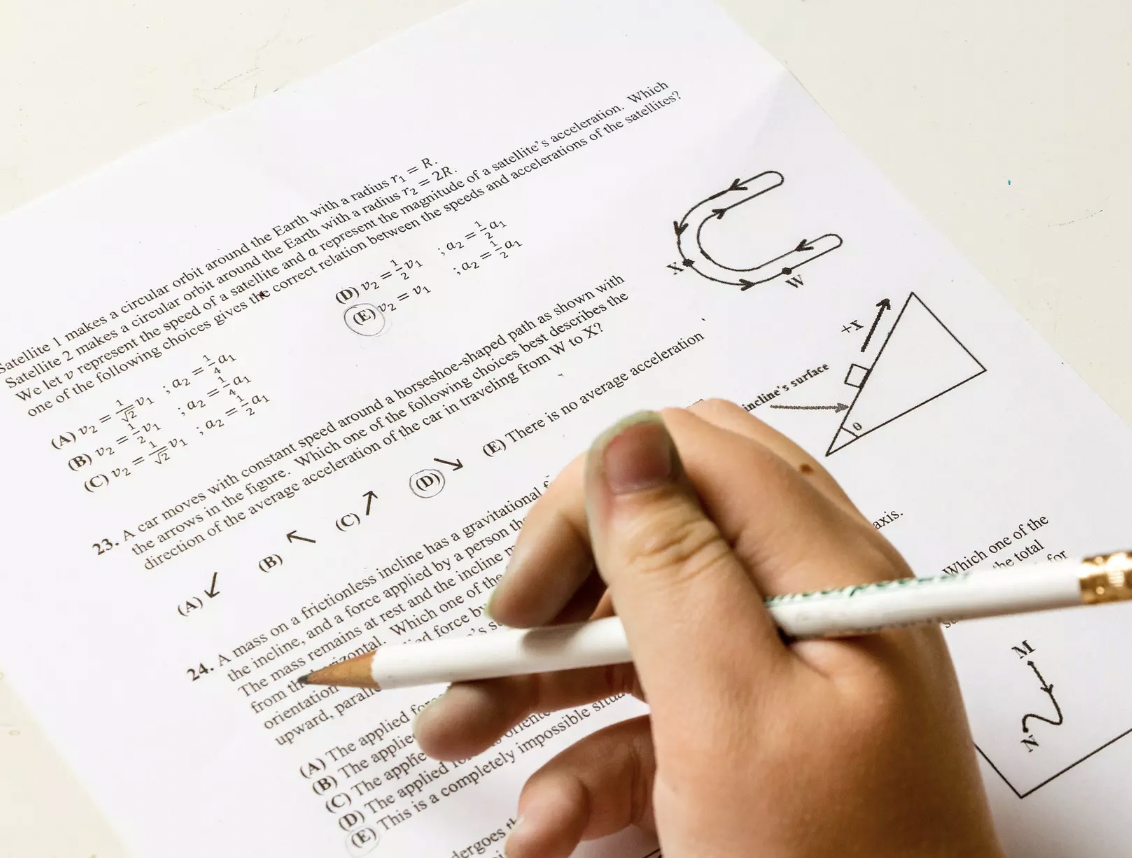 Satellite 1 makes a circular orbit around the Earth with a radius r₁ = R.
Satellite 2 makes a circular orbit around the Earth with a radius r₂ = 2R.
We let v represent the speed of a satellite and a represent the magnitude of a satellite's acceleration. Which
one of the following choices gives the correct relation between the speeds and accelerations of the satellites?
(A) v₂ = 1/√2 v₁ ; a₂ = 1/4 a₁
(B) v₂ = 1/2 v₁ ; a₂ = 1/4 a₁
(C) v₂ = 1/√2 v₁ ; a₂ = 1/2 a₁
(D) v₂ = 1/2 v₁ ; a₂ = 1/2 a₁
(E) v₂ = v₁ ; a₂ = 1/2 a₁
23. A car moves with constant speed around a horseshoe-shaped path as shown with
the arrows in the figure. Which one of the following choices best describes the
direction of the average acceleration of the car in traveling from W to X?
(A) ↙ (B) ↖ (C) ↗ (D) ↘ (E) There is no average acceleration
X
W
24. A mass on a frictionless incline has a gravitational
the incline, and a force applied by a person
The mass remains at rest and the incline
from the horizontal. Which one of the
orientation force by
upward,
(A) The applied
(B) The applied
(C) The applied
(D) The applied
(E) This is a completely impossible
+x
incline's surface
θ
axis.
Which one of the
the total
for
M
N